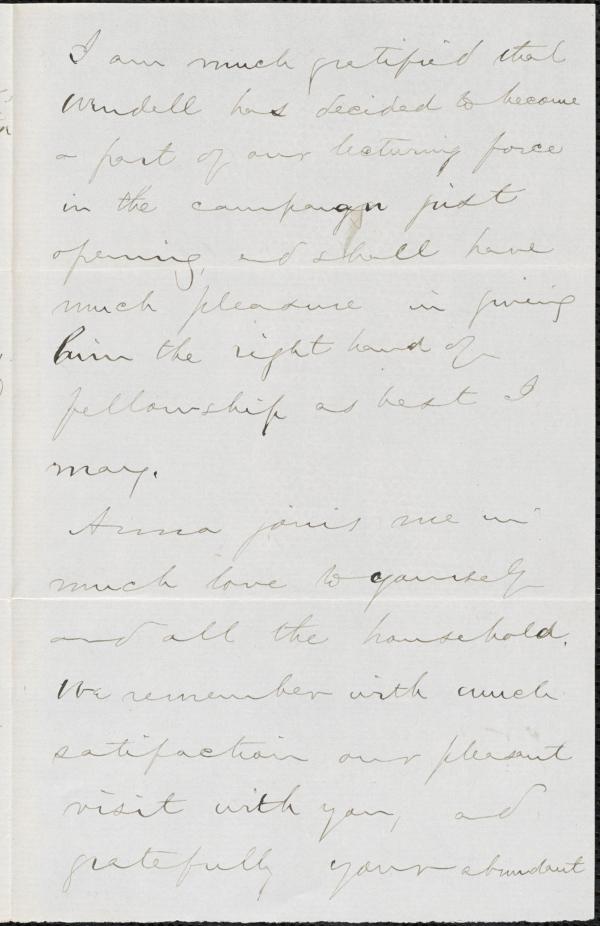 I am much gratified that
Wendell has decided to become
a part of our lecturing force
in the campaign just
opening, and shall have
much pleasure in giving
him the right hand of
fellowship as best I
may.
Anna joins me in
much love to yourself
and all the household.
We remember with much
satisfaction our pleasant
visit with you, and
gratefully your abundant